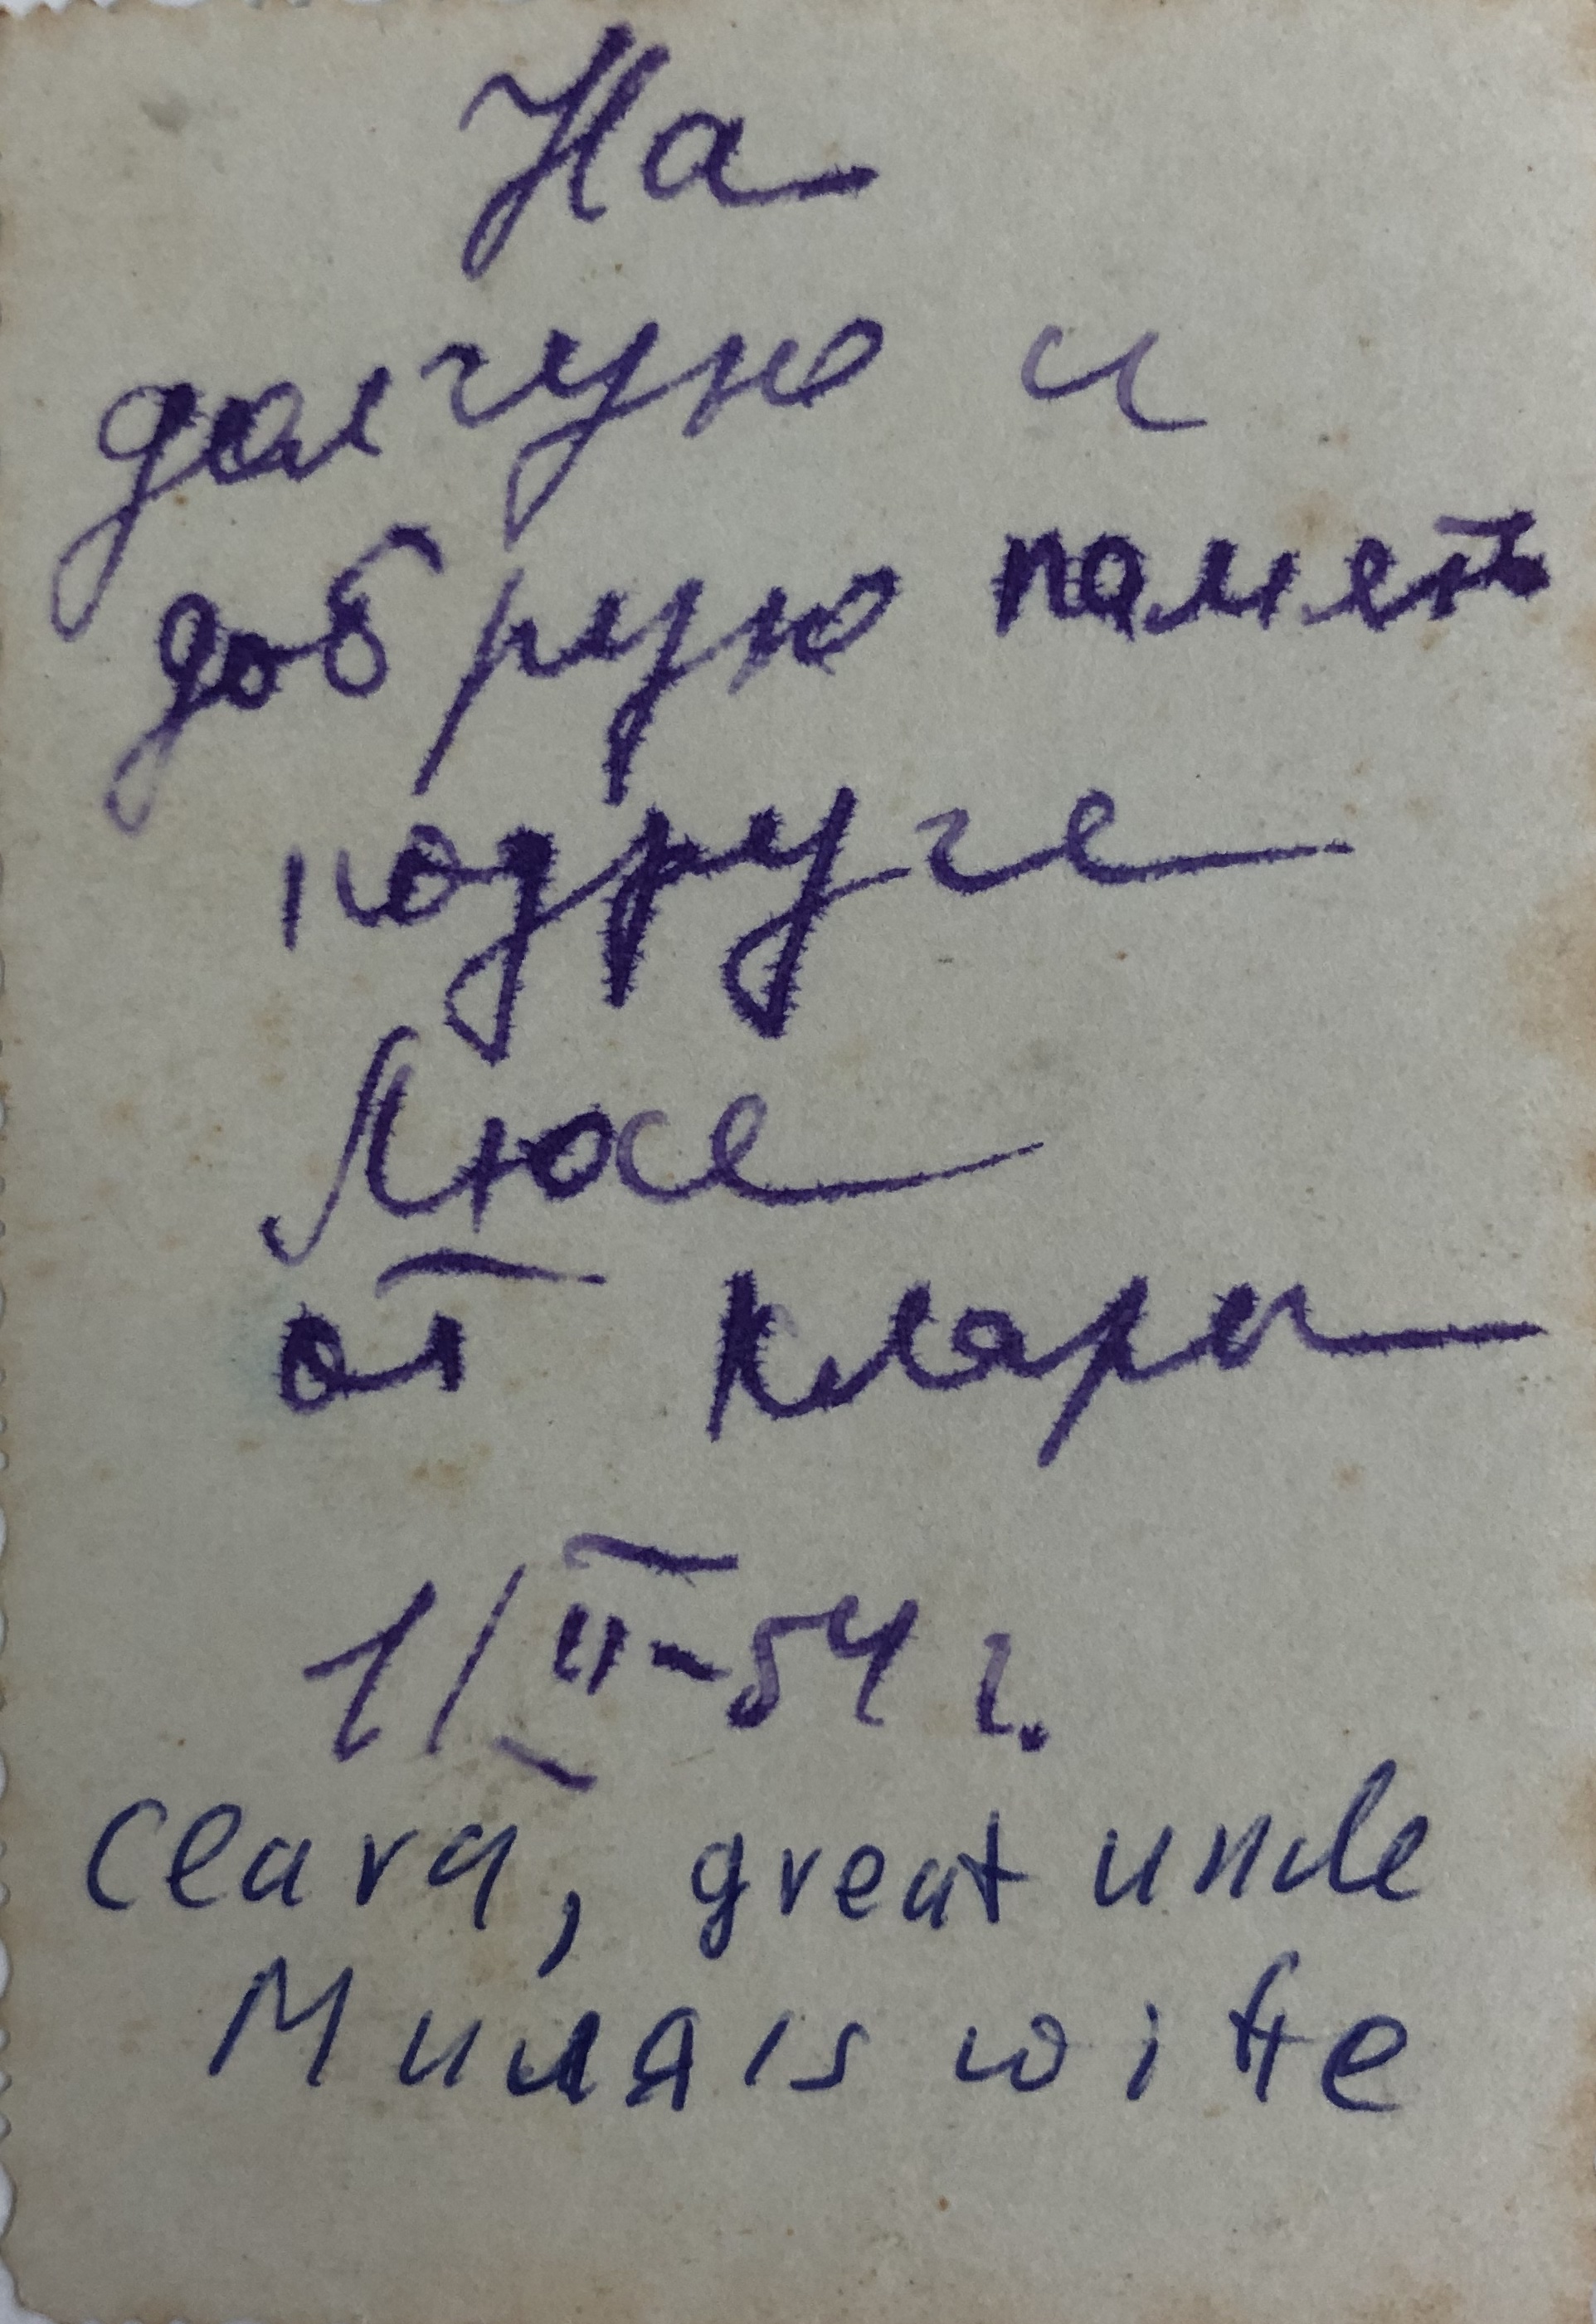 На
долгую и
добрую паметь
подруге
Люсе
от Клары
1/II-54 г.
Clara, great uncle
Миля's wife